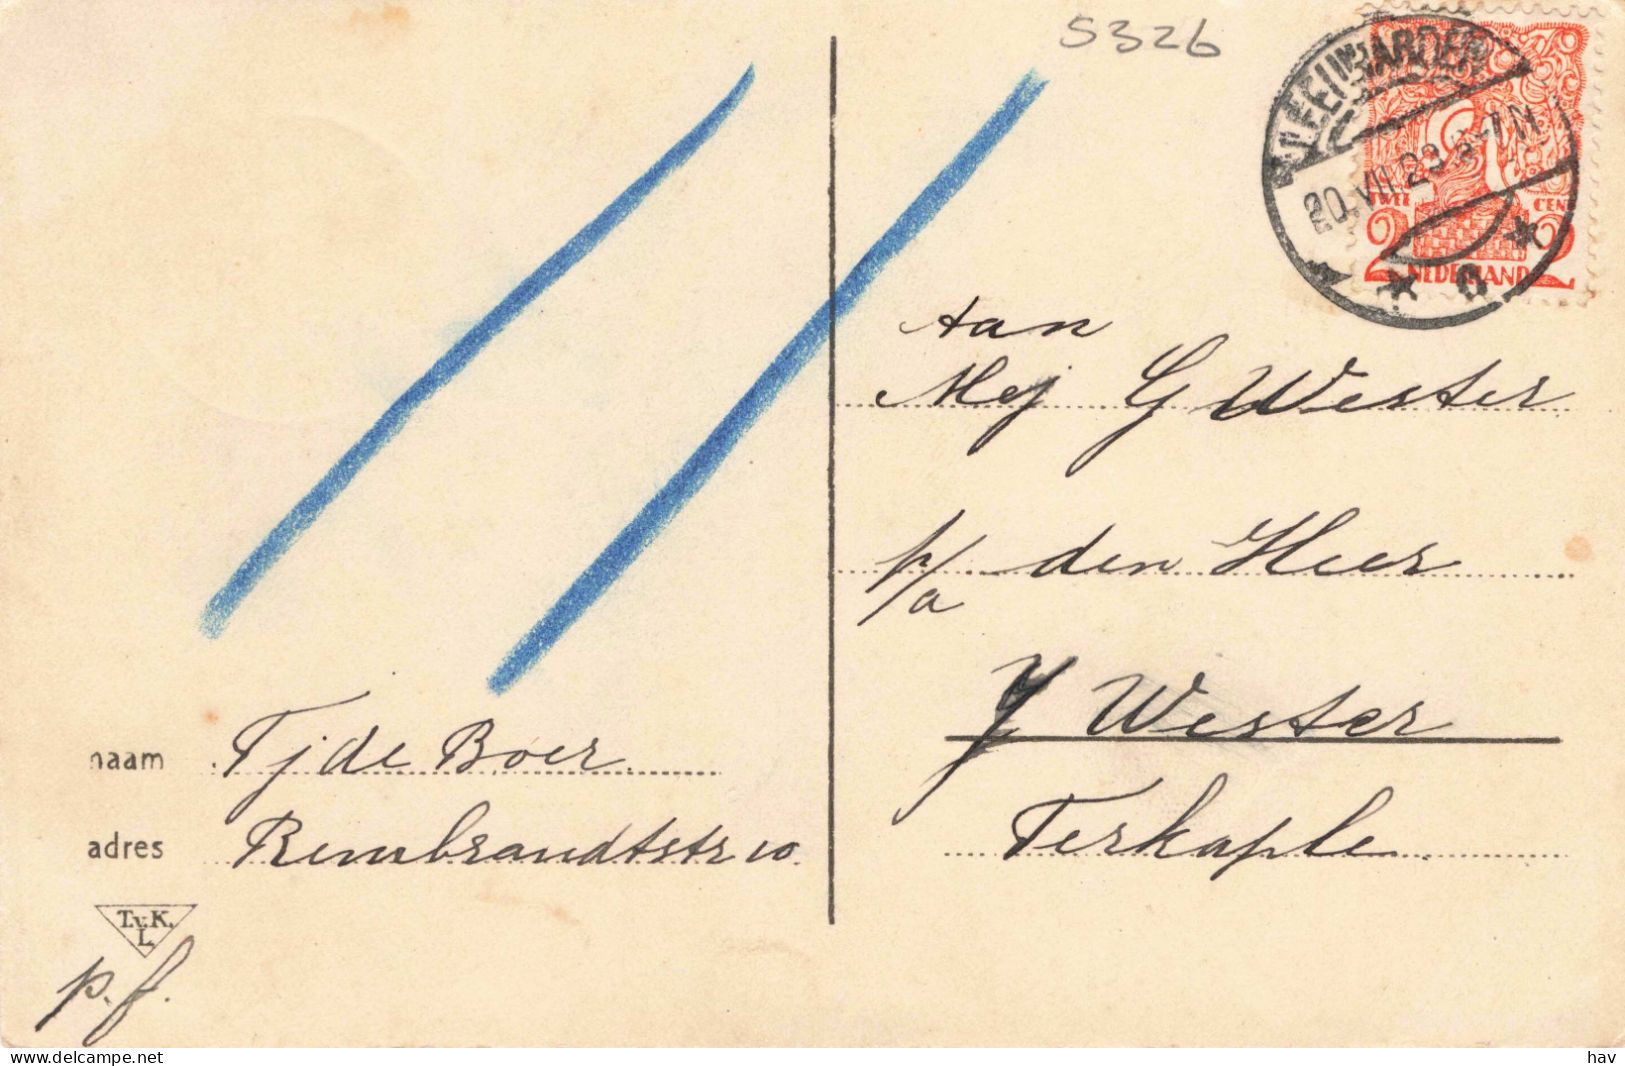 5326
LEEUWARDEN
20.VII.23 6-7N
TWEE CENT
2 2
NEDERLAND
Aan
Mej G Wester
p/a den Heer
Y Wester
Terkaple
naam Tj de Boer
adres Rembrandtstr 10
T.v.K.
L.
p.f.
www.delcampe.net
hav